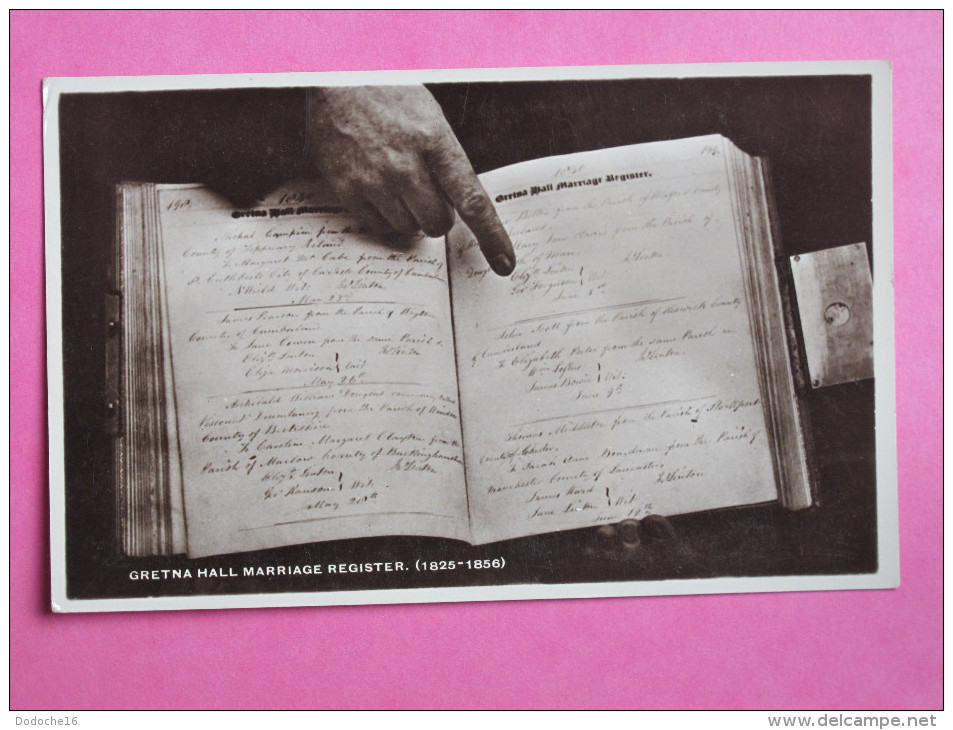 190
Gretna Hall Marriage
Michal Campion from the
County of Tipperary Ireland
To Margaret Mc Cabe from the Parish of
St Cuthberts City of Carlisle County of Cumberland
Wit: Jno Linton
May 23rd
James Pearson from the Parish of Wigton
County of Cumberland
To Jane Cowen from the same Parish &
Elizth Linton Jno Linton
Eliza Morrison } Wit
May 26th
Archibald William Douglas commonly called
Viscount Drumlanrig from the Parish of Windsor
County of Berkshire
To Caroline Margaret Clayton from the
Parish of Marlow County of Buckinghamshire
Elizth Linton Jno Linton
Geo Ranson } Wit:
May 28th
Gretna Hall Marriage Register.
from the Parish of County
from the Parish of
of Man.
Elizth Linton Jno Linton
Geo Ferguson } Wit:
June 5th
John Scott from the Parish of Keswick County
of Cumberland
To Elizabeth Peter from the same Parish
Wm Jno Linton
James } Wit:
June 9th
Thomas from the Parish of Stockport
County of Chester
To Sarah Ann from the Parish of
Manchester County of Lancaster
James Ward Jno Linton
Jane Linton } Wit:
June
GRETNA HALL MARRIAGE REGISTER. (1825-1856)
Dodoche16
www.delcampe.net